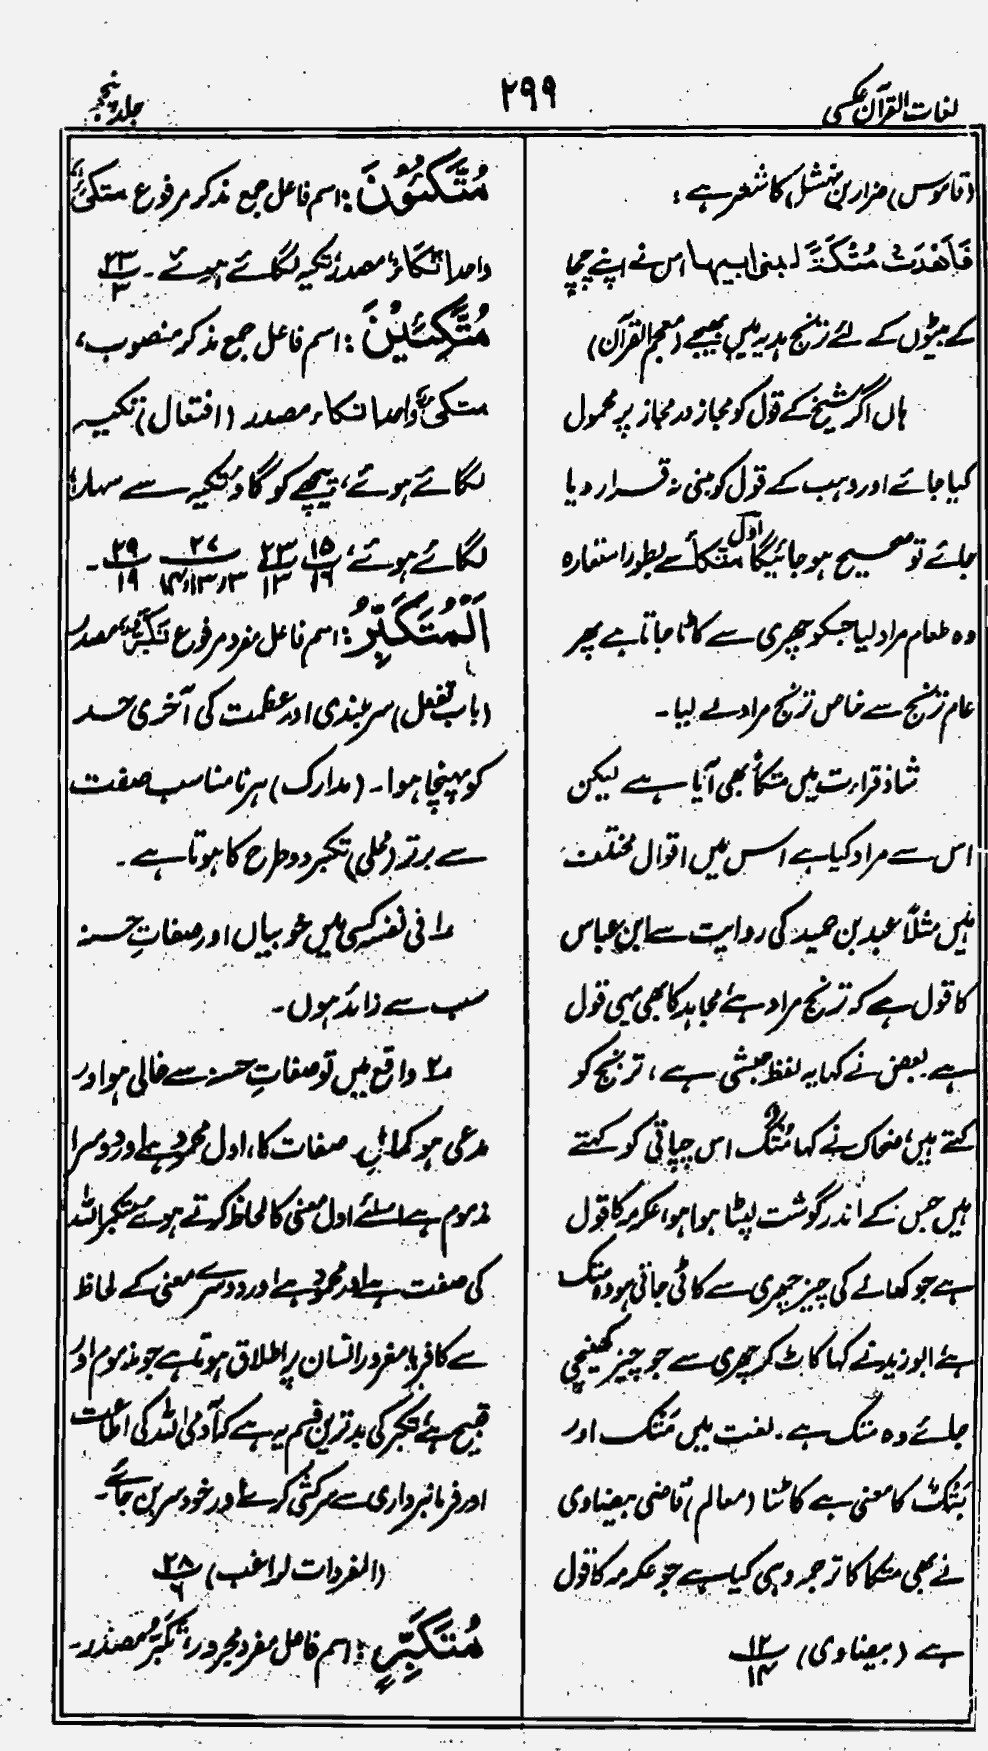 لغات القرآن عکسی
۲۹۹
جلد پنجم
(قاموس) ضرار بن نہشل کا شعر ہے :
فَاَھْدَتْ مُتْکَۃً لبنی ابیہا اس نے اپنے چچا
کے بیٹوں کے لئے ترنج ہدیہ میں بھیجے (معجم القرآن)
ہاں اگر شیخ کے قول کو مجاز در مجاز پر محمول
کیا جائے اور وہب کے قول کو مبنی نہ قرار دیا
جائے تو صحیح ہو جائیگا اول متکأ سے بطور استعارہ
وہ طعام مراد لیا جسکو چھری سے کاٹا جاتا ہے پھر
عام ترنج سے خاص ترنج مراد لے لیا۔
شاذ قراءت میں متکأ بھی آیا ہے لیکن
اس سے مراد کیا ہے اس میں اقوال مختلف
ہیں مثلاً عبد بن حمید کی روایت سے ابن عباس
کا قول ہے کہ ترنج مراد ہے مجاہد کا بھی یہی قول
ہے۔ بعض نے کہا یہ لفظ حبشی ہے، ترنج کو
کہتے ہیں، ضحاک نے کہا مُتْک اس چپاتی کو کہتے
ہیں جس کے اندر گوشت لپٹا ہوا ہو، عکرمہ کا قول
ہے جو کھانے کی چیز چھری سے کاٹی جاتی ہو وہ متک
ہے، ابو زید نے کہا کاٹ کر چھری سے جو چیز کھینچی
جائے وہ متک ہے۔ لغت میں مَتْک اور
بَتْکٌ کا معنی ہے کاٹنا (معالم) قاضی بیضاوی
نے بھی متکا کا ترجمہ وہی کیا ہے جو عکرمہ کا قول
ہے (بیضاوی) ۱۲/۱۴
مُتَّکِئُوْنَ : اسم فاعل جمع مذکر مرفوع متکئٌ
واحد اتکاء، مصدر، تکیہ لگائے ہوئے۔ ۲۳/۳
مُتَّکِئِیْنَ : اسم فاعل جمع مذکر منصوب،
متکئ واحد اتکاء مصدر (افتعال) تکیہ
لگائے ہوئے، پیچھے کو گاؤ تکیہ سے سہارا
لگائے ہوئے، ۱۵/۱۶ ۲۳/۱۳ ۲۷/۳ر۱۳ر۱۴ ۲۹/۱۹ ۔
اَلْمُتَکَبِّرُ : اسم فاعل مفرد مرفوع تَکَبُّرٌ، مصدر
(باب تفعل) سربلندی اور عظمت کی آخری حد
کو پہنچا ہوا۔ (مدارک) ہر نامناسب صفت
سے برتر (محلی) تکبر دو طرح کا ہوتا ہے۔
۱؎ فی نفسہ کسی میں خوبیاں اور صفاتِ حسنہ
سب سے زائد ہوں۔
۲؎ واقع میں تو صفاتِ حسنہ سے خالی ہو اور
مدعی ہو کمالِ صفات کا، اول محمود ہے اور دوسرا
مذموم ہے اسلئے اول معنی کا لحاظ کرتے ہوئے متکبر اللہ
کی صفت ہے اور محمود ہے اور دوسرے معنی کے لحاظ
سے کافر یا مغرور انسان پر اطلاق ہوتا ہے جو مذموم اور
قبیح ہے، تکبر کی بدترین قسم یہ ہے کہ آدمی اللہ کی اطاعت
اور فرمانبرداری سے سرکشی کرے اور خود سر بن جائے۔
(المفردات لراغب) ۲۸/۶
مُتَکَبِّرٍ : اسم فاعل مفرد مجرور، تَکَبُّرٌ مصدر۔